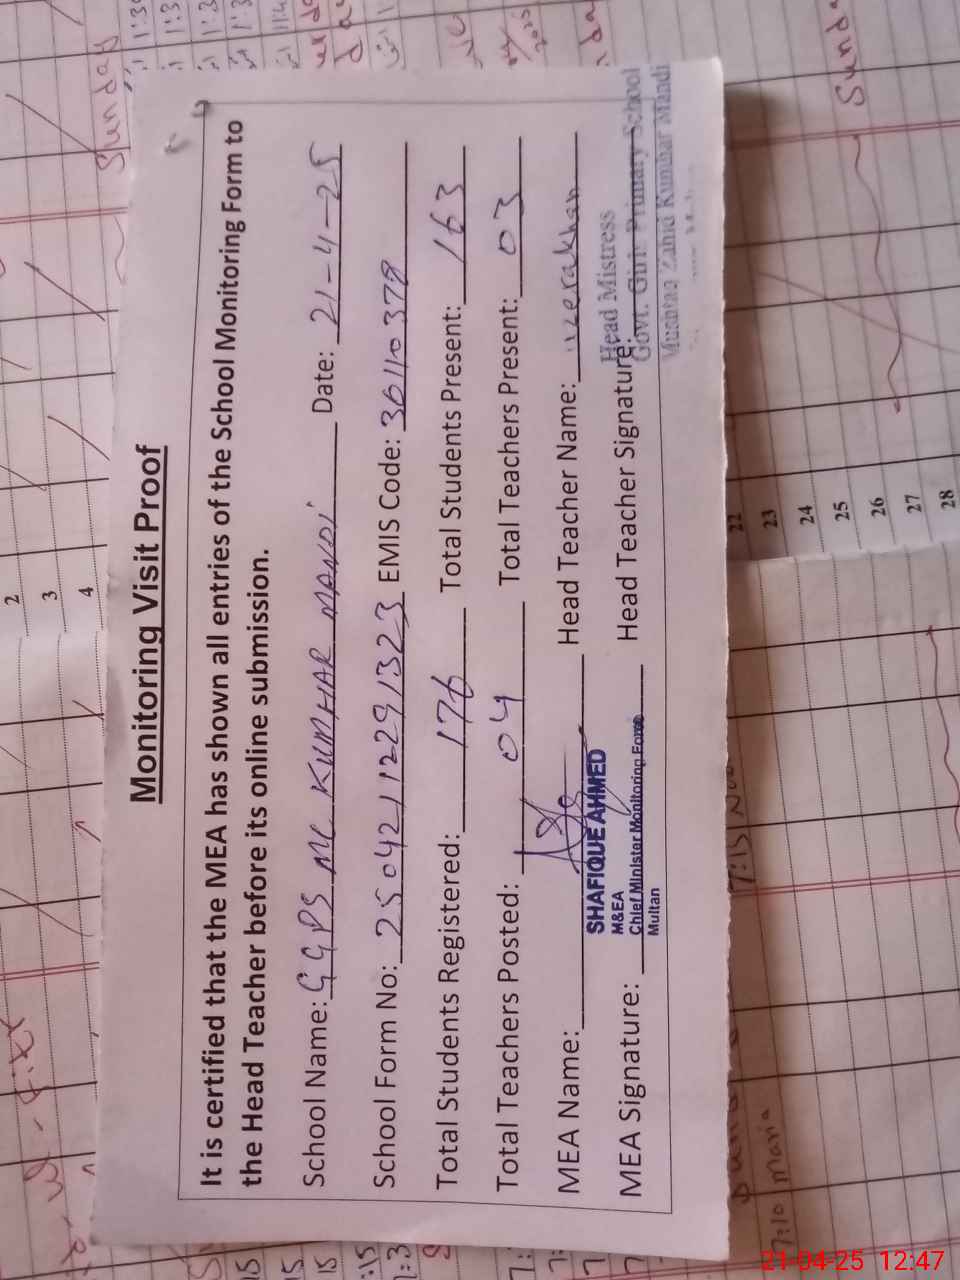 Monitoring Visit Proof
It is certified that the MEA has shown all entries of the School Monitoring Form to
the Head Teacher before its online submission.
School Name: GGPS MC KUMHAR MANDI Date: 21-4-25
School Form No: 25042112291323 EMIS Code: 36110378
Total Students Registered: 176 Total Students Present: 163
Total Teachers Posted: 04 Total Teachers Present: 03
MEA Name: Head Teacher Name:
SHAFIQUE AHMED
M&EA
Chief Minister Monitoring Force
Multan
MEA Signature: Head Teacher Signature:
Head Mistress
Govt. Girls Primary School
Mushtaq Zahid Kumhar Mandi
Sunday
Sunday
2
3
4
22
23
24
25
26
27
28
7:10 Maria
21-04-25 12:47